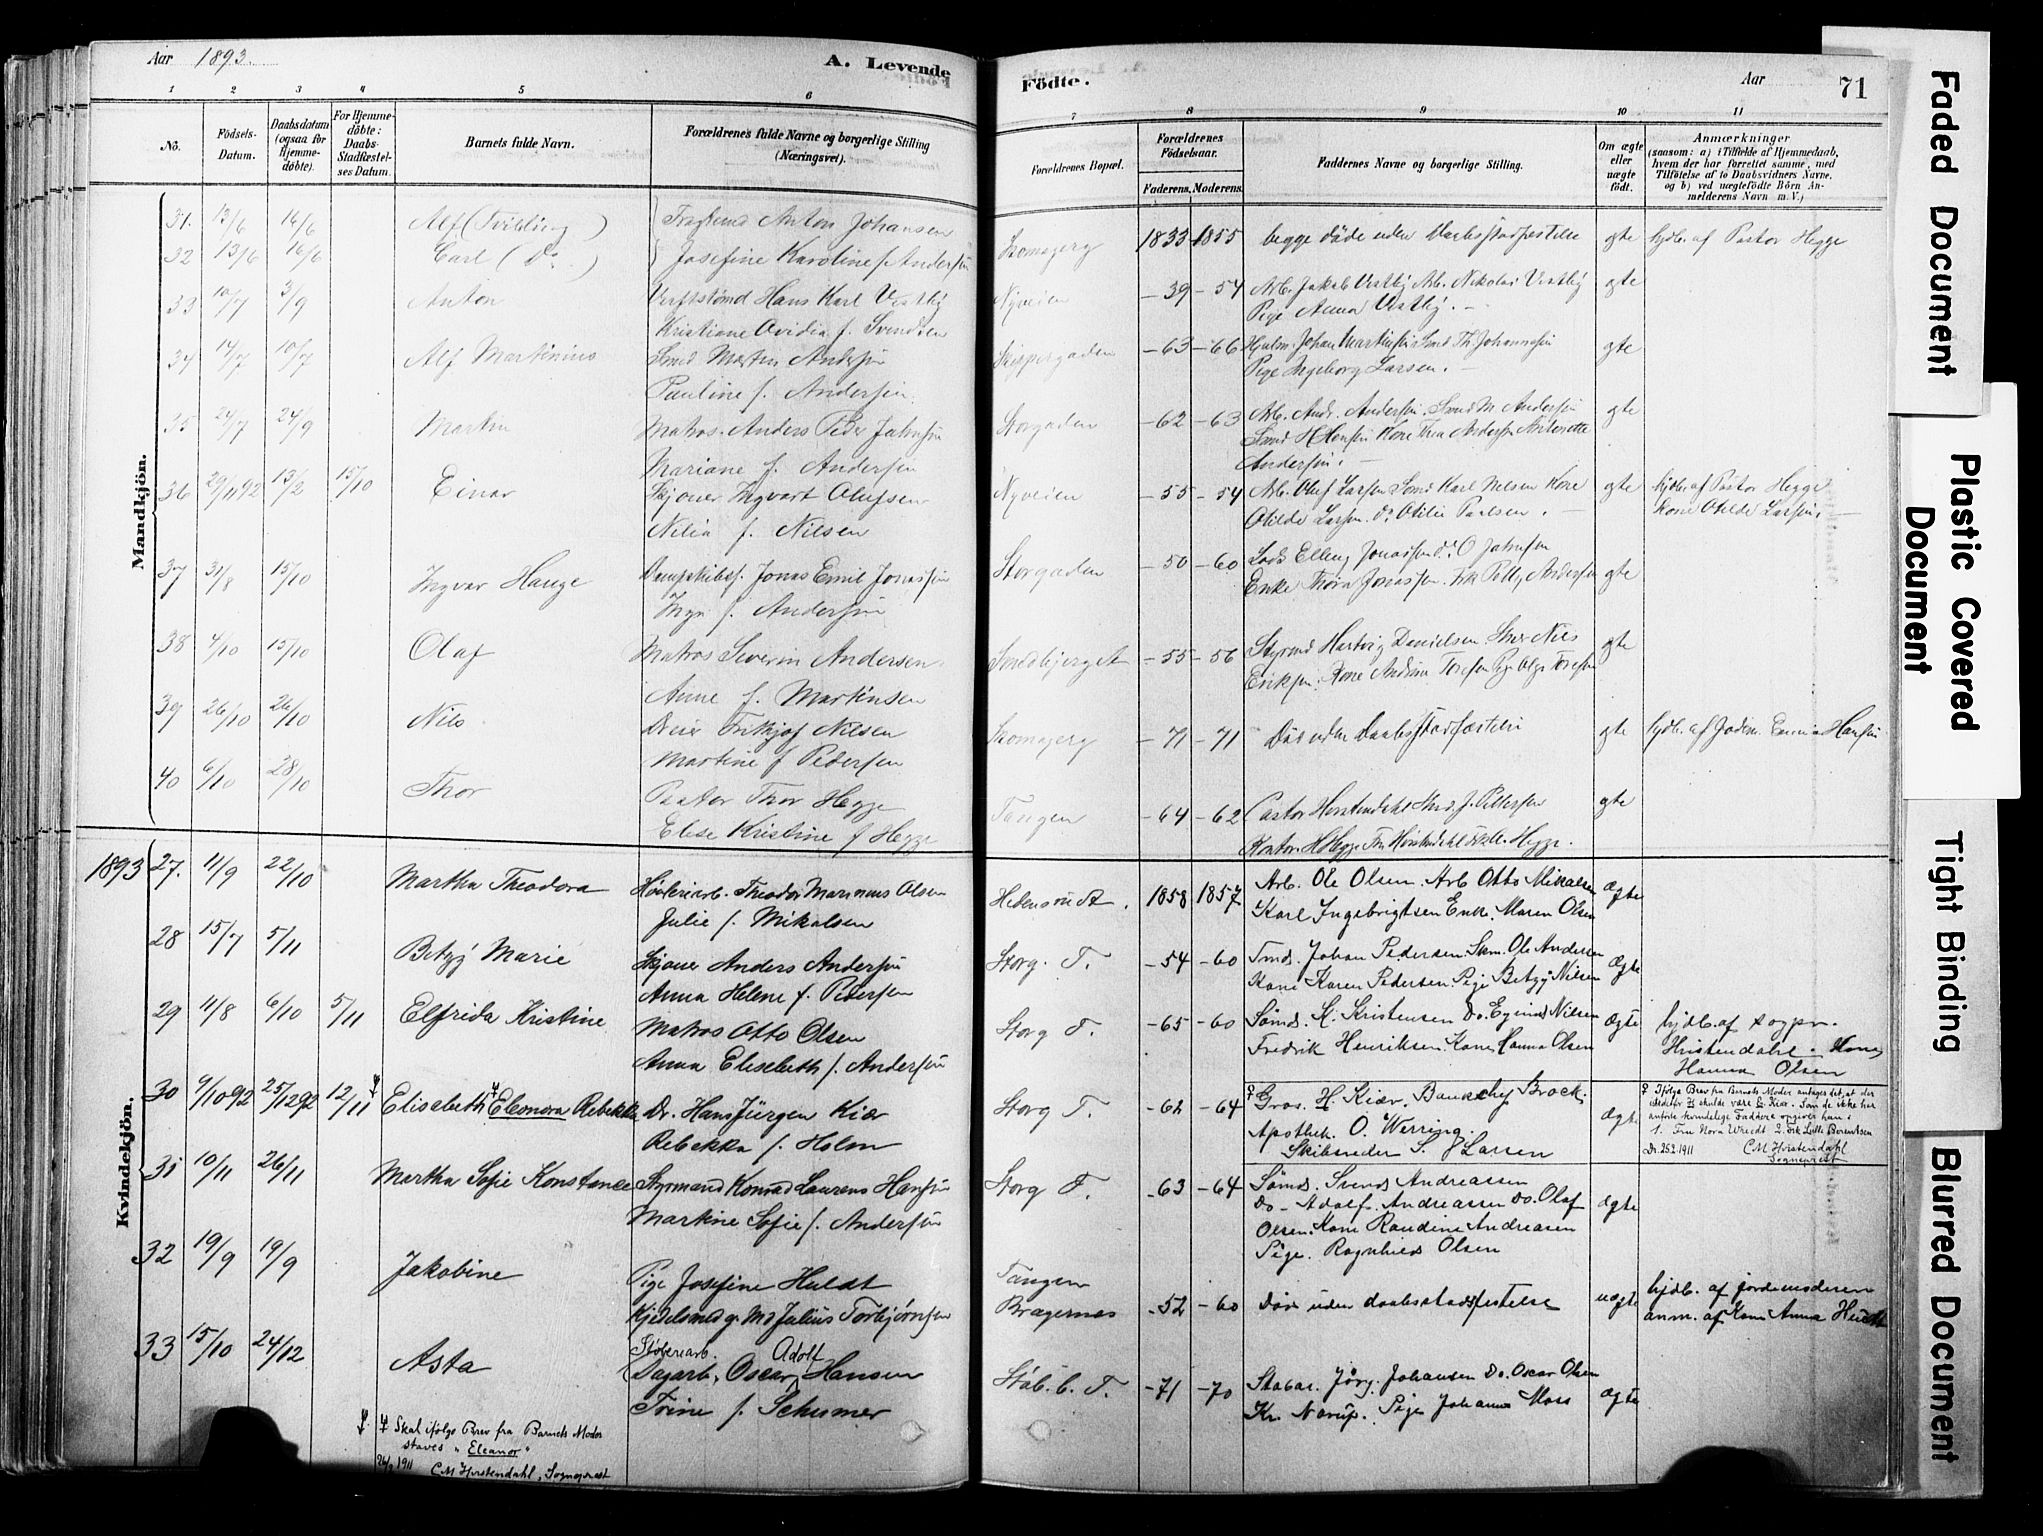 Aar 1893.
A. Levende
Fødte.
Aar
71
1 2 3 4 5 6 7 8 9 10 11
No.
Fødsels-
Datum.
Daabsdatum
(ogsaa for
Hjemme-
døbte).
For Hjemme-
døbte:
Daabs-
Stadfæstel-
ses Datum.
Barnets fulde Navn.
Forældrenes fulde Navne og borgerlige Stilling
(Næringsvei).
Forældrenes Bopæl.
Forældrenes
Fødselsaar.
Faderens. Moderens.
Faddernes Navne og borgerlige Stilling.
Om ægte
eller
uægte
født.
Anmærkninger
(saasom: a) i Tilfælde af Hjemmedaab,
hvem der har forrettet samme, med
Tilføielse af to Daabsvidners Navne,
og b) ved uægtefødte Børn An-
melderens Navn m. V.)
Mandkjøn.
31. 13/6 16/6 Alf (Tvilling) Anton Johansen
32 13/6 16/6 Carl (Do.) Josefine Karoline f. Andersen 1833 1855 begge døde uden Daabsstadfæstelse gte hjdb. af Pastor Hegge
33 10/7 3/9 Anton Hans Karl Vestby Nyveien -39 -54 Arb. Jakob Vestby Arb. Nikolai Vestby gte
Kristiane Ovidia f. Svendsen Pige Anna Vestby. -
34 14/7 10/7 Alf Martinius Smed Martin Andersen Skippergaden -63 -66 Johan Martinsen Smd Th. Johannesen gte
Pauline f. Andersen. Pige Ingeborg Larsen. -
35 24/7 24/9 Martin Matros. Anders Peder Jahnsen Storgaden -62 -63 Arb. Andr. Andersen. Smd M. Andersen gte
Mariane f. Andersen Smd H. Hansen Kone Thea Andersen Antonette
Andersen. -
36 29/11 92 13/2 15/10 Einar Skjoner Ingvart Olufsen Nyveien -55 -54 Arb. Oluf Larsen Smd Karl Nelsen Kone gte hjdb. af Pastor Hegge
Nilia f. Nilsen Otilde Larsen. do Otilie Paulsen. - Kone Otilde Larsen. -
37 31/8 15/10 Ingvar Hauge Dampskibsf. Jonas Emil Jonassen Storgaden -50 -60 Lods Elling Jonassen do O Jahnsen gte
f. Andersen Enke Thora Jonassen. Frk Polly Andersen
38 4/10 15/10 Olaf Matros Severin Andersen Smedbjerget -55 -56 Styrmd Hartvig Danielsen. Nils gte
Anne f. Martinsen Eriksen. Kone Andrine
39 26/10 26/10 Nils. Dreier Frithjof Nilsen -71 -71 Død uden Daabsstadfæstelse gte hjdb. af Jodem. Hansen
Martine f Pedersen
40 6/10 28/10 Thor Pastor Thor Hegge Tangen -64 -62 Pastor Horstendahl J. Pettersen gte
Elise Kristine f Hegge H Hegge Fru Horstendahl Hegge.
Kvindekjøn.
1893 27. 11/9 22/10 Martha Theodora Høvleriarb. Theodor Marinius Olsen Hedensrudt. 1858 1857 Arb. Ole Olsen. Arb Otto Mikalsen Ægte
Julie f. Mikalsen Karl Ingebrigtsen Enke. Maren Olsen
28 15/7 5/11 Betzy Marie Skjoner Anders Andersen Storg. T. -54 -60 Tmd. Johan Pedersen. Skm. Ole Andersen Ægte
Anna Helene f. Pedersen Kone Karen Pedersen. Pige Betzy Nilsen
29 11/8 6/10 5/11 Elfrida Kristine Matros Otto Olsen Storg T. -65 -60 Sømd. K. Kristensen Do. Nilsen Ægte hjdb. af sogpr.
Anna Elisebeth f. Andersen Fredrik Henriksen. Kone Hanna Olsen Horstendahl. Kone
Hanna Olsen
30 9/10 92 25/12 92 12/11 Elisabeth Eleonora Rebekka Dr. Hans Jürgen Kiær Storg T. -62 -64 Gros. H. Kiær. Bankchef Brock. Ægte
Rebekka f. Holm Apothek. O. Werring.
Skibsreder S. J Larsen
Ifølge Brev fra Barnets Moder antages det, at der
istedetfor H skulde være E. Kiær. Som de ikke her
anførte kvindelige Faddere opgiver hun:
1. Fru Nora Wredt 2. Frk Lulle Berentsen
Dr. 25.2.1911 C M Horstendahl
Sogneprest
31 10/11 26/11 Martha Sofie Konstance Styrmand Konrad Laurens Hansen Storg T. -63 -64 Sømd. Svend Andreassen Ægte
Martine Sofie f. Andersen Do - Adolf Andreassen Do. Olaf
Olsen. Kone Randine Andreasen
Pige. Ragnhild Olsen
32 19/9 19/9 Jakobine Pige Josefine Huldt Tangen
Kjedelsmed g. Md Julius Torbjørnsen Bragernæs -52 -60 Død uden daabsstadfestelse uægte hjdb. af jordemoderen
anm. af Kone Anna
33 15/10 24/12 Asta Støberiarb. Adolf
Dagarb. Oscar Hansen Støb. b. T. -71 -70 Jørg. Johansen Do. Oscar Olsen Ægte
Trine f. Schumer Kr. Narup. Pige Johanna Moss
Skal ifølge Brev fra Barnets Moder
staves "Eleanor"
1911 C M Horstendahl, Sogneprest
Faded Document
Plastic Covered
Document
Tight Binding
Blurred Document